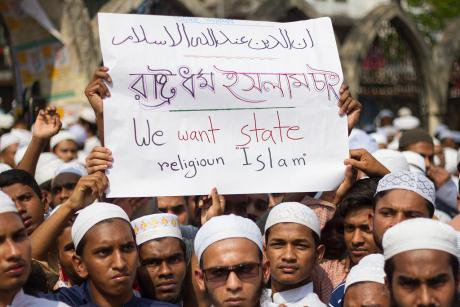 ان الدين عند الله الاسلام
রাষ্ট্র ধর্ম ইসলাম চাই
We want state
religioun Islam